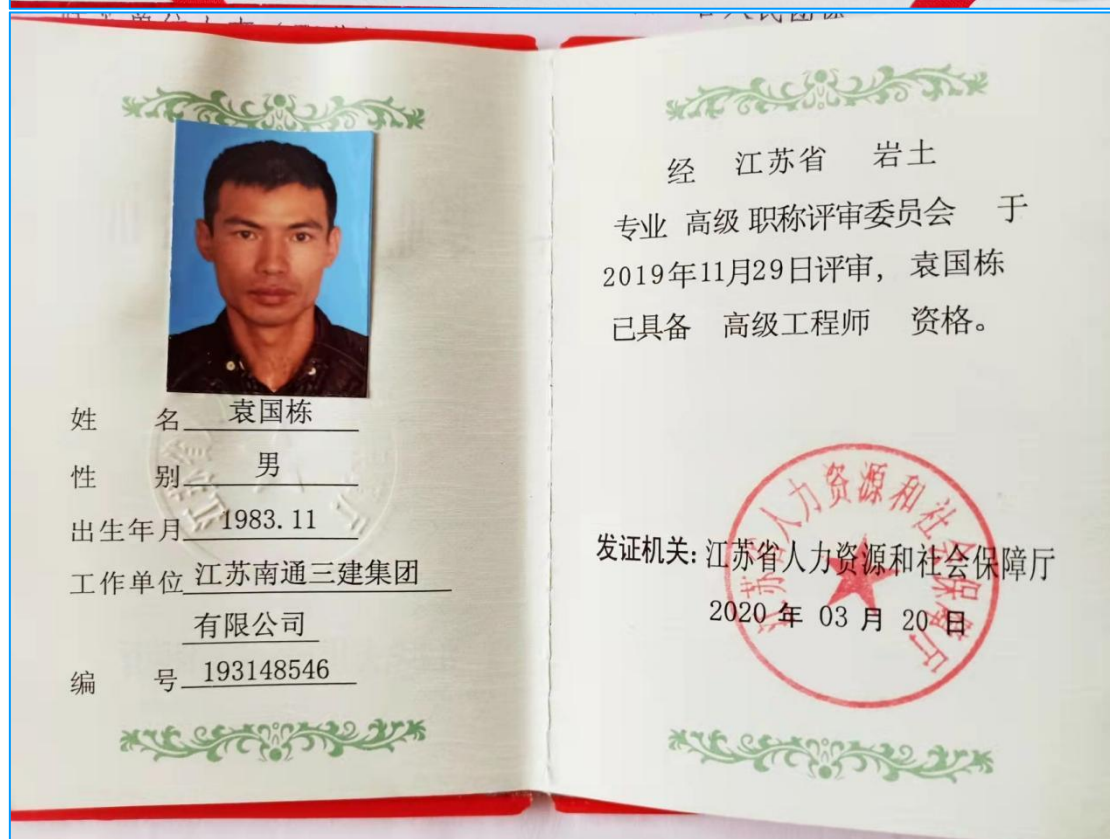 姓 名 袁国栋
性 别 男
出生年月 1983.11
工作单位 江苏南通三建集团
有限公司
编 号 193148546
经 江苏省 岩土
专业 高级 职称评审委员会 于
2019年11月29日评审, 袁国栋
已具备 高级工程师 资格。
江苏省人力资源和社会保障厅
发证机关: 江苏省人力资源和社会保障厅
2020 年 03 月 20 日